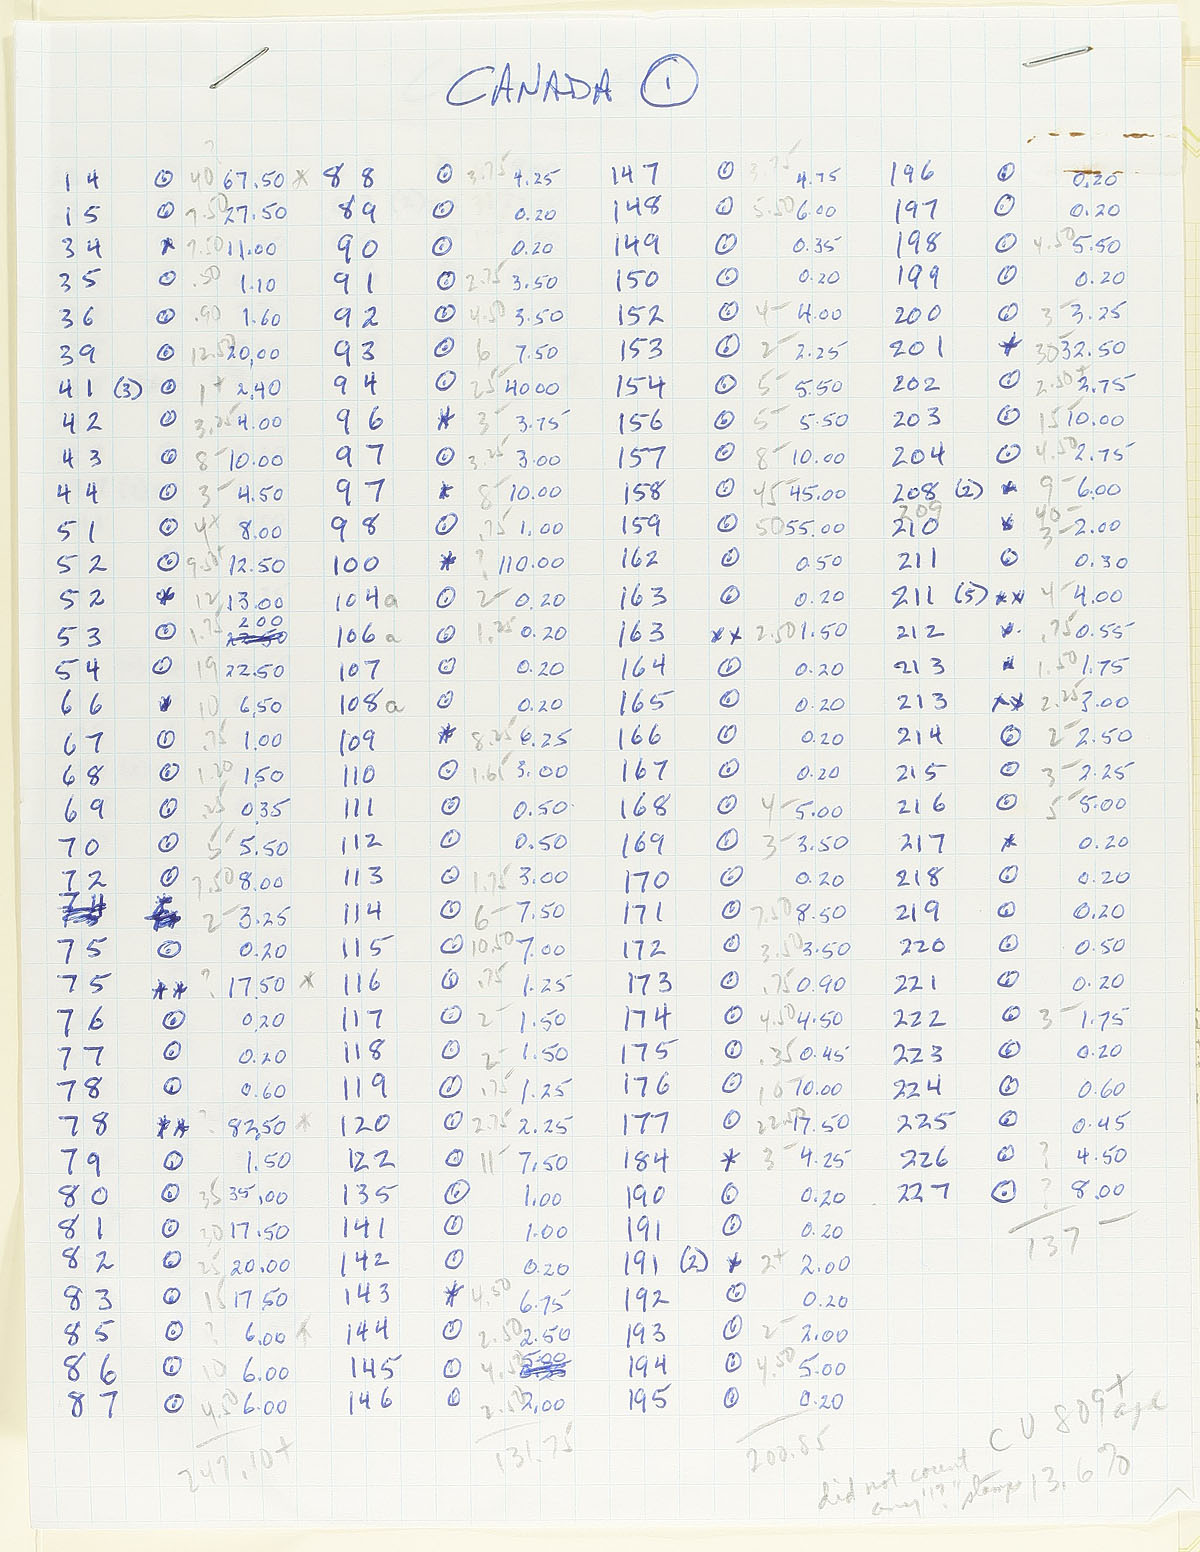 CANADA ①
?
14 ⊙ 40 67.50 * 88 ⊙ 3.75 4.25 147 ⊙ 3.75 4.75 196 ⊙ 0.20
15 ⊙ 7.50 27.50 89 ⊙ 0.20 148 ⊙ 5.50 6.00 197 ⊙ 0.20
34 * 7.50 11.00 90 ⊙ 0.20 149 ⊙ 0.35 198 ⊙ 4.50 5.50
35 ⊙ .50 1.10 91 ⊙ 2.75 3.50 150 ⊙ 0.20 199 ⊙ 0.20
36 ⊙ .90 1.60 92 ⊙ 4.50 3.50 152 ⊙ 4- 4.00 200 ⊙ 3- 3.25
39 ⊙ 12.50 20.00 93 ⊙ 6 7.50 153 ⊙ 2- 2.25 201 * 30 32.50
41 (3) ⊙ 1+ 2.40 94 ⊙ 25 40.00 154 ⊙ 5- 5.50 202 ⊙ 2.50+ 2.75
42 ⊙ 3.25 4.00 96 * 3- 3.75 156 ⊙ 5- 5.50 203 ⊙ 15 10.00
43 ⊙ 8- 10.00 97 ⊙ 3.25 3.00 157 ⊙ 8- 10.00 204 ⊙ 4.50 2.75
44 ⊙ 3- 4.50 97 * 8- 10.00 158 ⊙ 45 45.00 208 (2) * 9- 6.00
209 40-
51 ⊙ 4+ 8.00 98 ⊙ .75 1.00 159 ⊙ 50 55.00 210 * 3- 2.00
52 ⊙ 9.50+ 12.50 100 * ? 110.00 162 ⊙ 0.50 211 ⊙ 0.30
52 * 12 13.00 104a ⊙ 2- 0.20 163 ⊙ 0.20 211 (5) ** 4- 4.00
53 ⊙ 1.75 2.00 106a ⊙ 1.25 0.20 163 ** 2.50 1.50 212 * .75 0.55
54 ⊙ 19 22.50 107 ⊙ 0.20 164 ⊙ 0.20 213 * 1.50 1.75
66 * 10 6.50 108a ⊙ 0.20 165 ⊙ 0.20 213 ** 2.25 3.00
67 ⊙ .75 1.00 109 * 8.25 6.25 166 ⊙ 0.20 214 ⊙ 2- 2.50
68 ⊙ 1.20 1.50 110 ⊙ 1.65 3.00 167 ⊙ 0.20 215 ⊙ 3- 2.25
69 ⊙ .25 0.35 111 ⊙ 0.50 168 ⊙ 4- 5.00 216 ⊙ 5- 5.00
70 ⊙ 5- 5.50 112 ⊙ 0.50 169 ⊙ 3- 3.50 217 * 0.20
72 ⊙ 7.50 8.00 113 ⊙ 1.75 3.00 170 ⊙ 0.20 218 ⊙ 0.20
74 2- 3.25 114 ⊙ 6- 7.50 171 ⊙ 7.50 8.50 219 ⊙ 0.20
75 ⊙ 0.20 115 ⊙ 10.50 7.00 172 ⊙ 3.50 3.50 220 ⊙ 0.50
75 ** ? 17.50 * 116 ⊙ .75 1.25 173 ⊙ .75 0.90 221 ⊙ 0.20
76 ⊙ 0.20 117 ⊙ 2- 1.50 174 ⊙ 4.50 4.50 222 ⊙ 3- 1.75
77 ⊙ 0.20 118 ⊙ 2- 1.50 175 ⊙ .35 0.45 223 ⊙ 0.20
78 ⊙ 0.60 119 ⊙ .75 1.25 176 ⊙ 10 10.00 224 ⊙ 0.60
78 ** ? 82.50 * 120 ⊙ 2.75 2.25 177 ⊙ 17.50 225 ⊙ 0.45
79 ⊙ 1.50 122 ⊙ 11- 7.50 184 * 3- 4.25 226 ⊙ ? 4.50
80 ⊙ 35 35.00 135 ⊙ 1.00 190 ⊙ 0.20 227 ⊙ ? 8.00
81 ⊙ 30 17.50 141 ⊙ 1.00 191 ⊙ 0.20 137-
82 ⊙ 25 20.00 142 ⊙ 0.20 191 (2) * 2+ 2.00
83 ⊙ 15 17.50 143 * 4.50 6.75 192 ⊙ 0.20
85 ⊙ ? 6.00 * 144 ⊙ 2.50 2.50 193 ⊙ 2- 2.00
86 ⊙ 10 6.00 145 ⊙ 4.50 5.00 194 ⊙ 4.50 5.00
87 ⊙ 4.50 6.00 146 ⊙ 2.50 2.00 195 ⊙ 0.20
247.10+ 131.75 200.85
CV 809+
did not count
any "?" stamps 13.6%